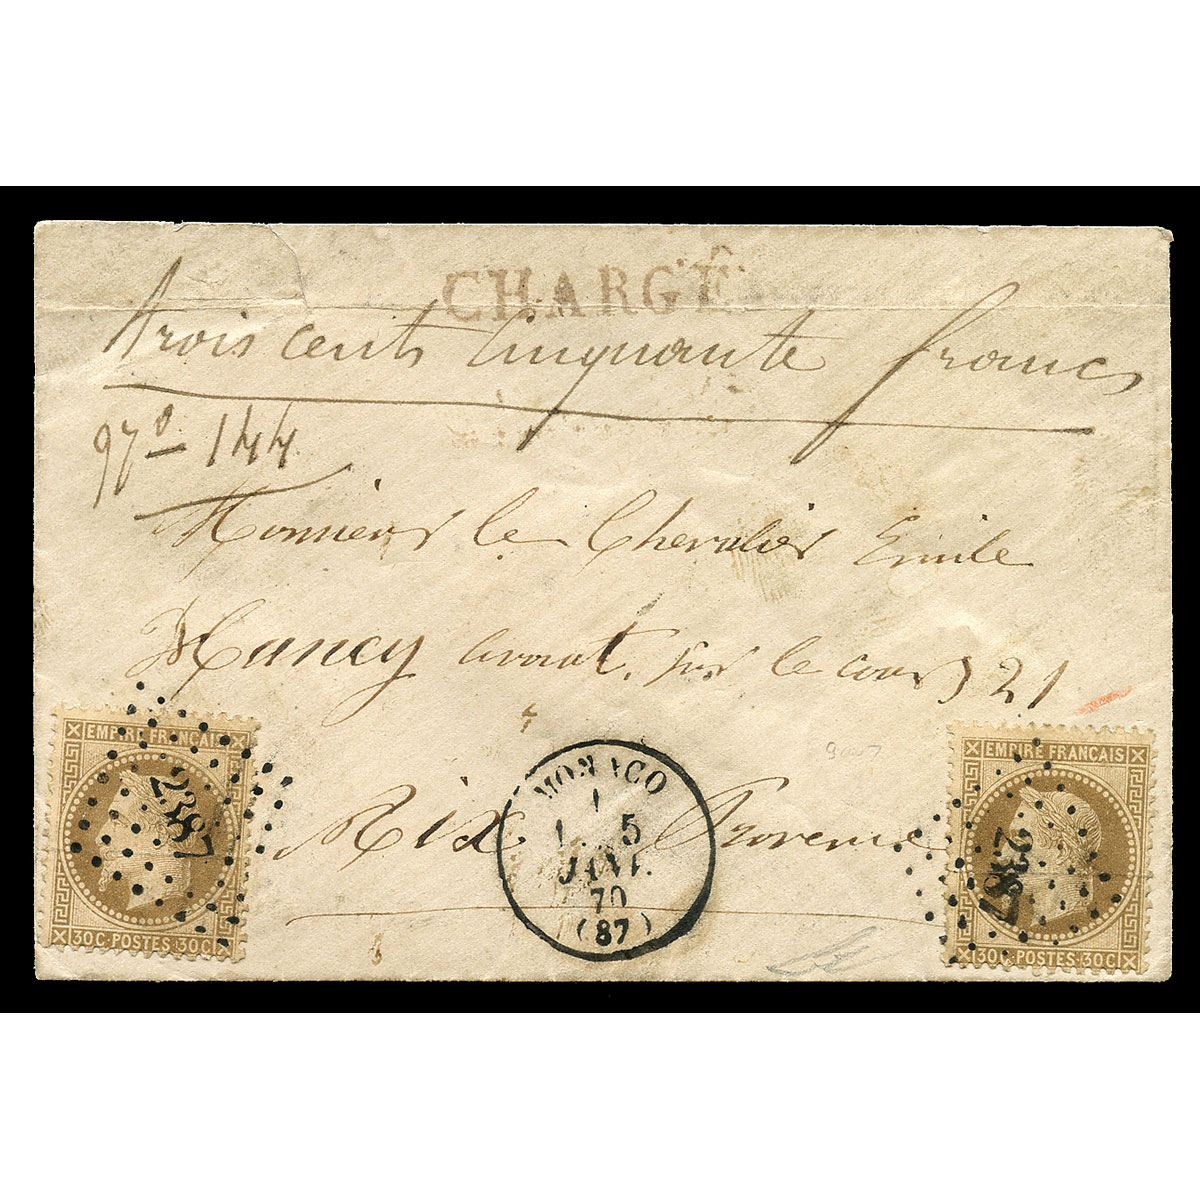 CHARGÉ
trois cents cinquante francs
97 144
Monsieur le Chevalier Emile
Mancy avocat sur le cours 21
EMPIRE FRANÇAIS
2387
30C POSTES 30C
MONACO
1
15
JANV.
70
(87)
Aix Provence
EMPIRE FRANÇAIS
2387
30C POSTES 30C